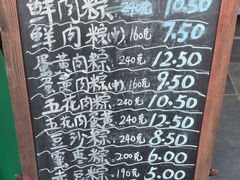 鲜肉粽 240克 10.50
鲜肉粽(小) 160克 7.50
蛋黄肉粽 240克 12.50
蛋黄肉粽(小) 160克 9.50
五花肉粽 240克 10.50
五花肉蛋黄 240克 12.50
豆沙粽 240克 8.50
蜜枣粽 200克 6.00
赤豆粽 190克 5.00